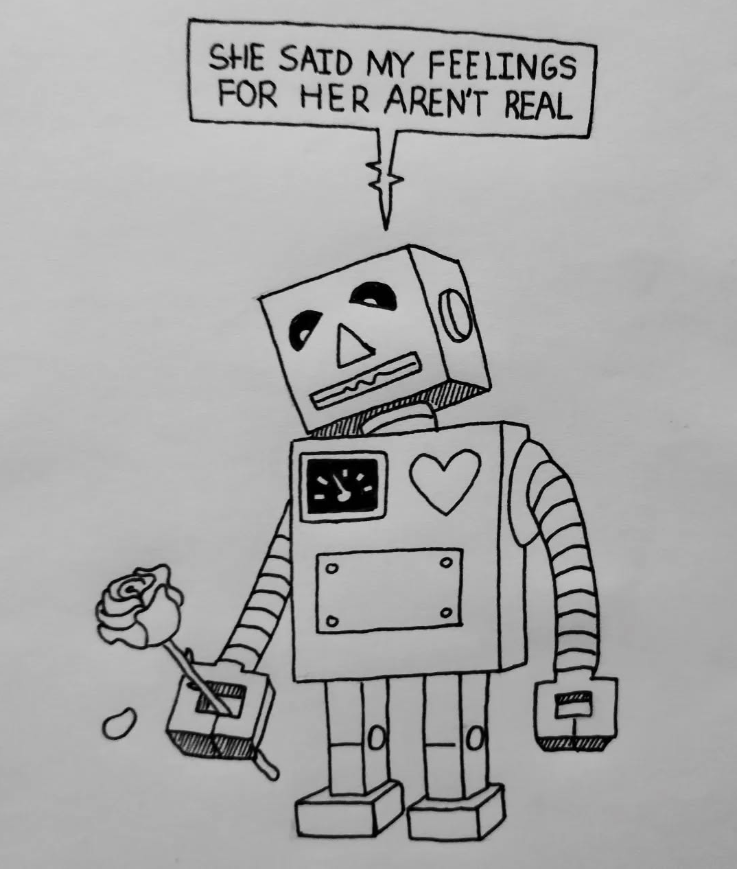 SHE SAID MY FEELINGS
FOR HER AREN'T REAL